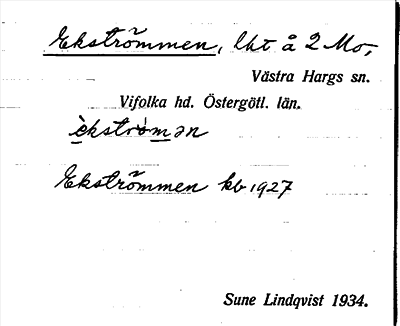 Ekströmmen, lht å 2 Mo,
Västra Hargs sn.
Vifolka hd. Östergötl. län.
èkström ən
Ekströmmen kb 1927
Sune Lindqvist 1934.